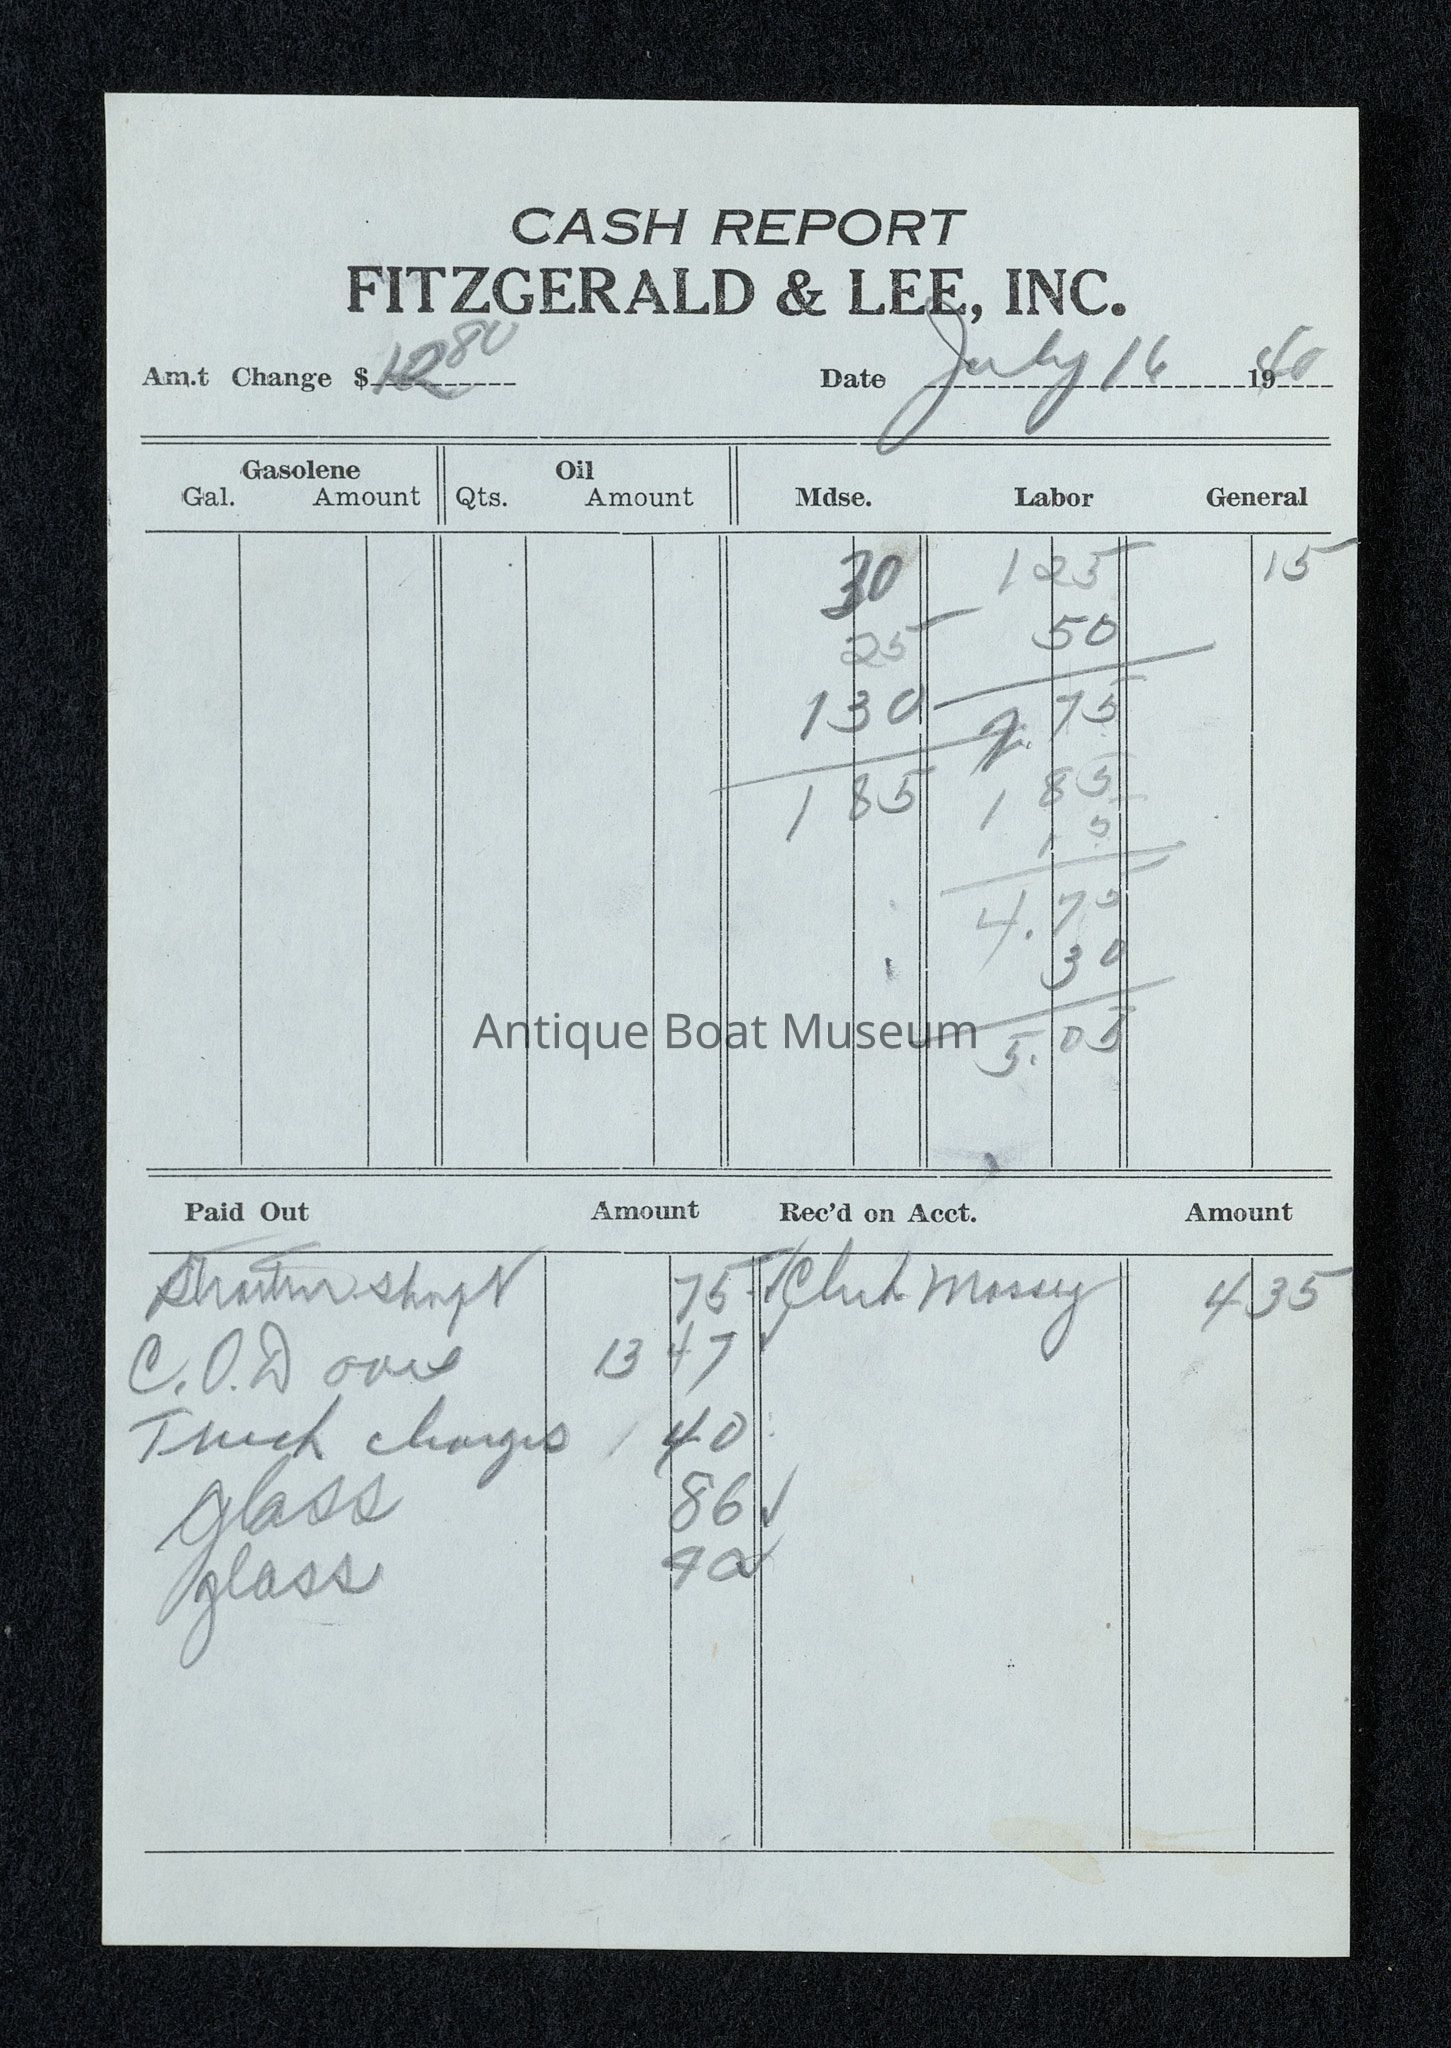 CASH REPORT
FITZGERALD & LEE, INC.
Am.t Change $ 12 80 Date July 16 1940
Gasolene Oil
Gal. Amount Qts. Amount Mdse. Labor General
30 1 25 15
25 50
1 30 2.75
1 85 1 85
15
4.75
30
Antique Boat Museum
5.05
Paid Out Amount Rec'd on Acct. Amount
75 Massey 4 35
C.O.D 13 47
Truck charges 1 40
glass 86
glass 90